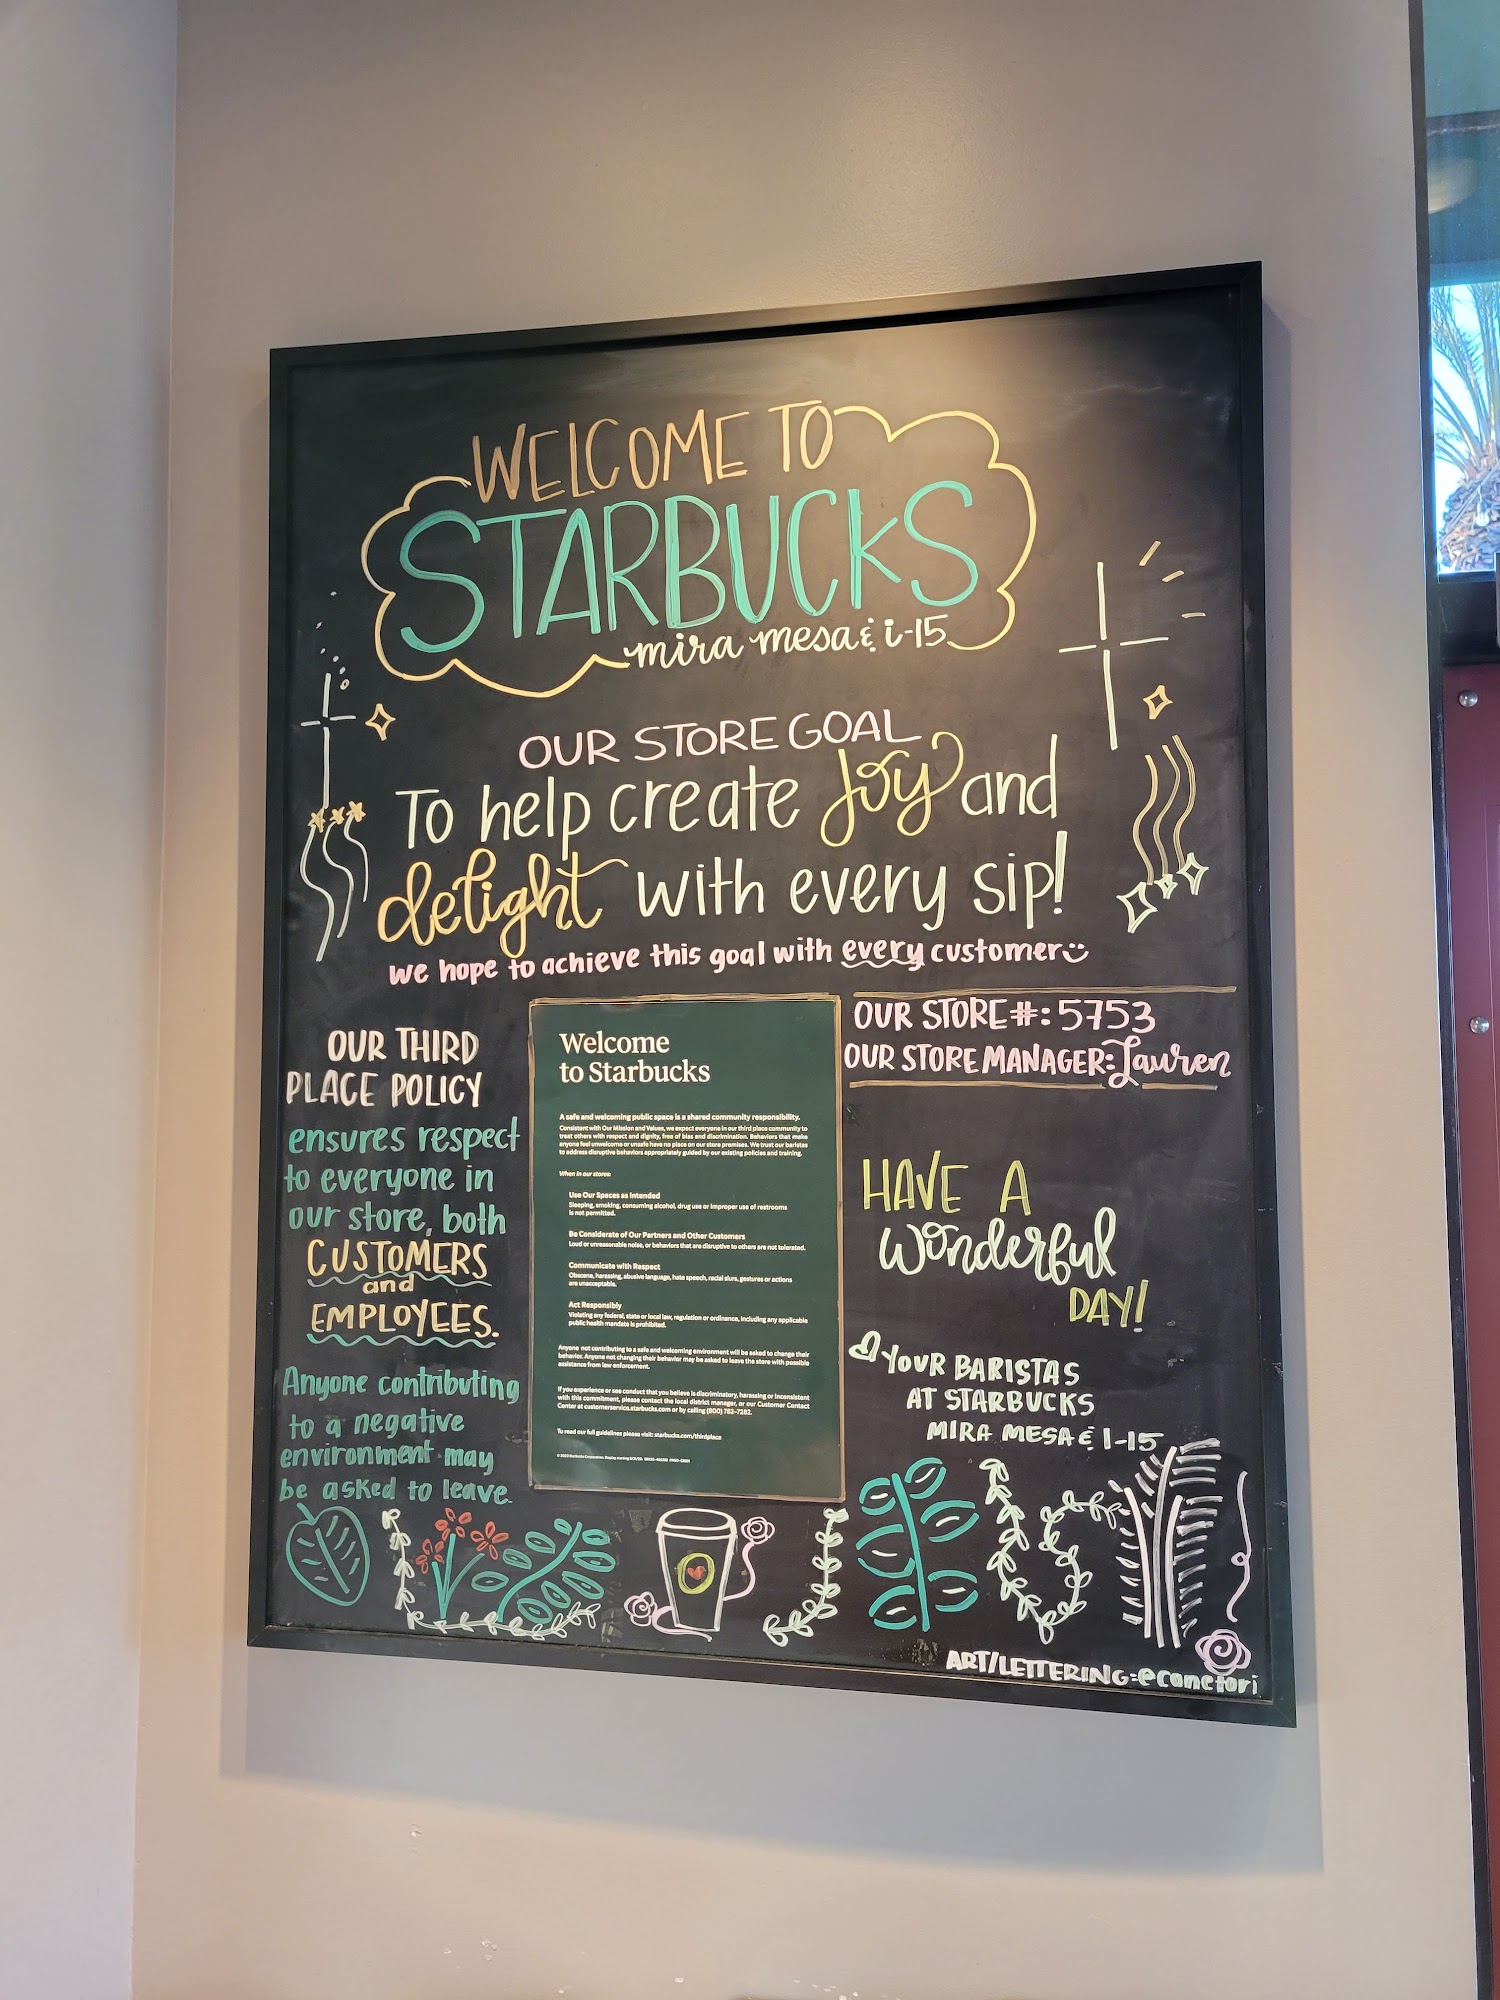 WELCOME TO
STARBUCKS
mira mesa & i-15
OUR STORE GOAL
To help create Joy and
delight with every sip!
we hope to achieve this goal with every customer
OUR THIRD
PLACE POLICY
ensures respect
to everyone in
our store, both
CUSTOMERS
and
EMPLOYEES.
Anyone contributing
to a negative
environment may
be asked to leave.
Welcome
to Starbucks
A safe and welcoming public space is a shared community responsibility.
Consistent with Our Mission and Values, we expect everyone in our third place community to
treat others with respect and dignity, free of bias and discrimination. Behaviors that make
anyone feel unwelcome or unsafe have no place on our store premises. We trust our baristas
to address disruptive behaviors appropriately guided by our existing policies and training.
When in our stores:
Use Our Spaces as Intended
Sleeping, smoking, consuming alcohol, drug use or improper use of restrooms
is not permitted.
Be Considerate of Our Partners and Other Customers
Loud or unreasonable noise, or behaviors that are disruptive to others are not tolerated.
Communicate with Respect
Obscene, harassing, abusive language, hate speech, racial slurs, gestures or actions
are unacceptable.
Act Responsibly
Violating any federal, state or local law, regulation or ordinance, including any applicable
public health mandate is prohibited.
Anyone not contributing to a safe and welcoming environment will be asked to change their
behavior. Anyone not changing their behavior may be asked to leave the store with possible
assistance from law enforcement.
If you experience or see conduct that you believe is discriminatory, harassing or inconsistent
with this commitment, please contact the local district manager, or our Customer Contact
Center at customerservice.starbucks.com or by calling (800) 782-7282.
To read our full guidelines please visit: starbucks.com/thirdplace
OUR STORE #: 5753
OUR STORE MANAGER: Lauren
HAVE A
wonderful
DAY!
YOUR BARISTAS
AT STARBUCKS
MIRA MESA & I-15
ART/LETTERING=@canetori